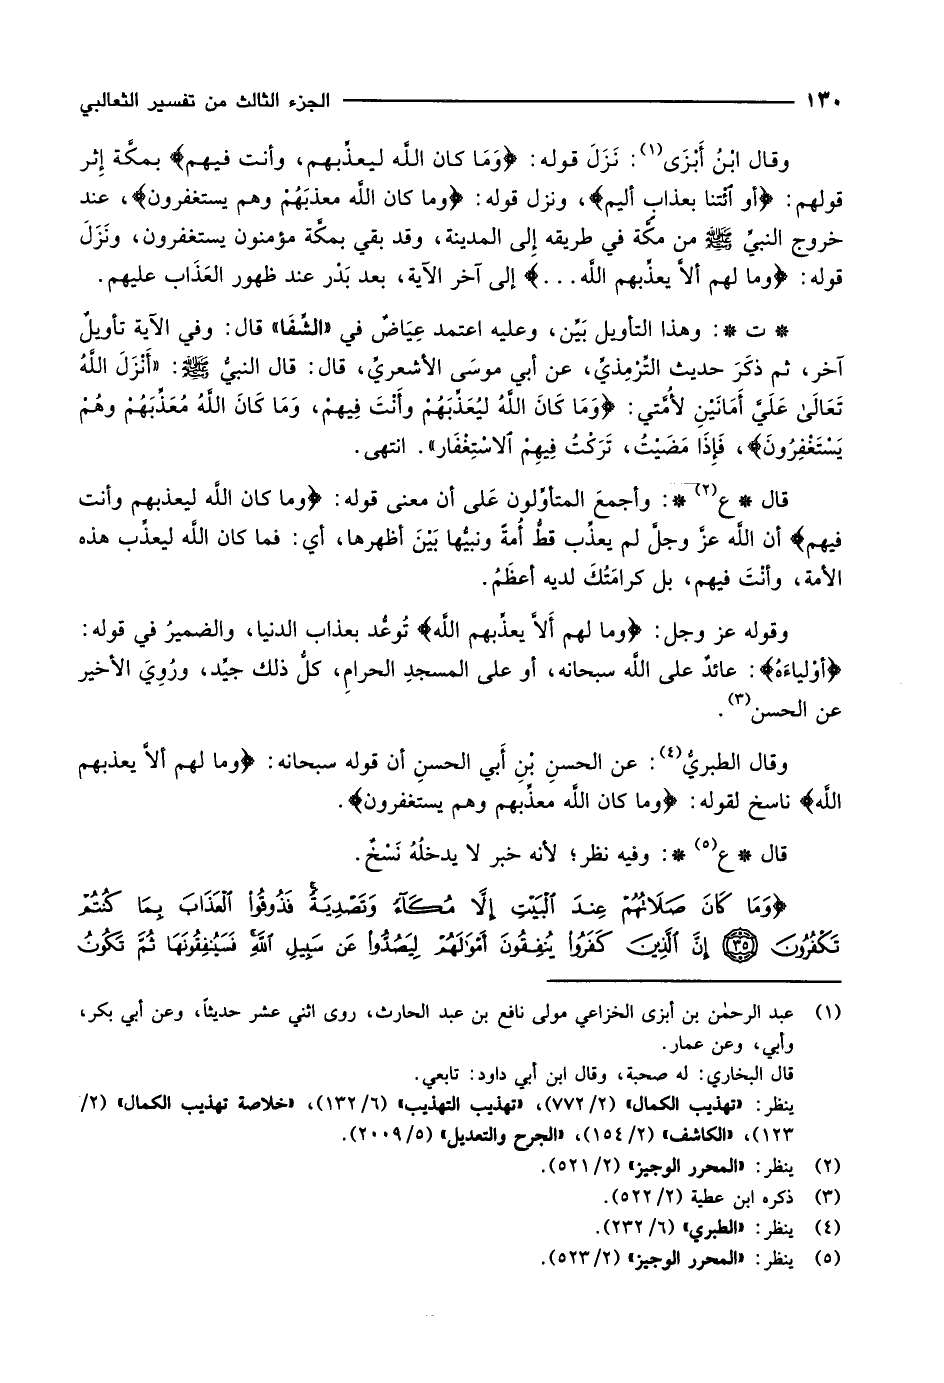 ١٣٠ ــــــــــــــــــــ الجزء الثالث من تفسير الثعالبي
وقال ابْنُ أَبْزَى(١): نَزَلَ قوله: ﴿وَمَا كان اللَّه ليعذِّبهم، وأنت فيهم﴾ بمكَّة إِثر
قولهم: ﴿أو ٱئتنا بعذابٍ أليم﴾، ونزل قوله: ﴿وما كان اللَّه معذبَهُمْ وهم يستغفرون﴾، عند
خروج النبيِّ ﷺ من مكَّة في طريقه إِلى المدينة، وقد بقي بمكَّة مؤمنون يستغفرون، ونَزَلَ
قوله: ﴿وما لهم ألاَّ يعذِّبهم اللَّه...﴾ إِلى آخر الآية، بعد بَدْر عند ظهور العَذَاب عليهم.
* ت *: وهذا التأويل بَيِّن، وعليه اعتمد عِيَاضٌ في «الشِّفَا» قال: وفي الآية تأويلٌ
آخر، ثم ذكَرَ حديث التِّرْمِذيِّ، عن أبي موسَى الأشعريِّ، قال: قال النبيُّ ﷺ: «أَنْزَلَ اللَّهُ
تَعَالَىٰ عَلَيَّ أَمَانَيْنِ لأُمَّتي: ﴿وَمَا كَانَ اللَّهُ لِيُعَذِّبَهُمْ وأَنْتَ فِيهِمْ، وَمَا كَانَ اللَّهُ مُعَذِّبَهُمْ وهُمْ
يَسْتَغْفِرُونَ﴾، فَإِذَا مَضَيْتُ، تَرَكْتُ فِيهِمْ ٱلاسْتِغْفَار». انتهى.
قال * ع(٢) *: وأجمعَ المتأوِّلون عَلى أن معنى قوله: ﴿وما كان اللَّه ليعذبهم وأنت
فيهم﴾ أن اللَّه عزَّ وجلَّ لم يعذِّب قطُّ أُمةً ونبيُّها بَيْنَ أظهرها، أي: فما كان اللَّه ليعذِّب هذه
الأمة، وأنْتَ فيهم، بل كرامَتُكَ لديه أعظَمُ.
وقوله عز وجل: ﴿وما لهم أَلاَّ يعذِّبهم اللَّه﴾ تُوعُّد بعذاب الدنيا، والضميرُ في قوله:
﴿أَوْلياءَهُ﴾: عائدٌ على اللَّه سبحانه، أو على المسجدِ الحرامِ، كلُّ ذلك جيِّد، ورُوِيَ الأخير
عن الحسن(٣).
وقال الطبريُّ(٤): عن الحسنِ بْنِ أَبي الحسنِ أن قوله سبحانه: ﴿وما لهم ألاَّ يعذبهم
اللَّه﴾ ناسخ لقوله: ﴿وما كان اللَّه معذِّبهم وهم يستغفرون﴾.
قال * ع(٥) *: وفيه نظر؛ لأنه خبر لا يدخلُهُ نَسْخٌ.
﴿وَمَا كَانَ صَلَاتُهُمْ عِندَ ٱلْبَيْتِ إِلَّا مُكَآءً وَتَصْدِيَةً فَذُوقُوا۟ ٱلْعَذَابَ بِمَا كُنتُمْ
تَكْفُرُونَ ﴿٣٥﴾ إِنَّ ٱلَّذِينَ كَفَرُوا۟ يُنفِقُونَ أَمْوَٰلَهُمْ لِيَصُدُّوا۟ عَن سَبِيلِ ٱللَّهِ فَسَيُنفِقُونَهَا ثُمَّ تَكُونُ
(١) عبد الرحمٰن بن أبزى الخزاعي مولى نافع بن عبد الحارث، روى اثني عشر حديثاً، وعن أبي بكر،
وأبي، وعن عمار.
قال البخاري: له صحبة، وقال ابن أبي داود: تابعي.
ينظر: «تهذيب الكمال» (٢/ ٧٧٢)، «تهذيب التهذيب» (٦/ ١٣٢)، «خلاصة تهذيب الكمال» (٢/
١٢٣)، «الكاشف» (٢/ ١٥٤)، «الجرح والتعديل» (٥/ ٢٠٠٩).
(٢) ينظر: «المحرر الوجيز» (٢/ ٥٢١).
(٣) ذكره ابن عطية (٢/ ٥٢٢).
(٤) ينظر: «الطبري» (٦/ ٢٣٢).
(٥) ينظر: «المحرر الوجيز» (٢/ ٥٢٣).